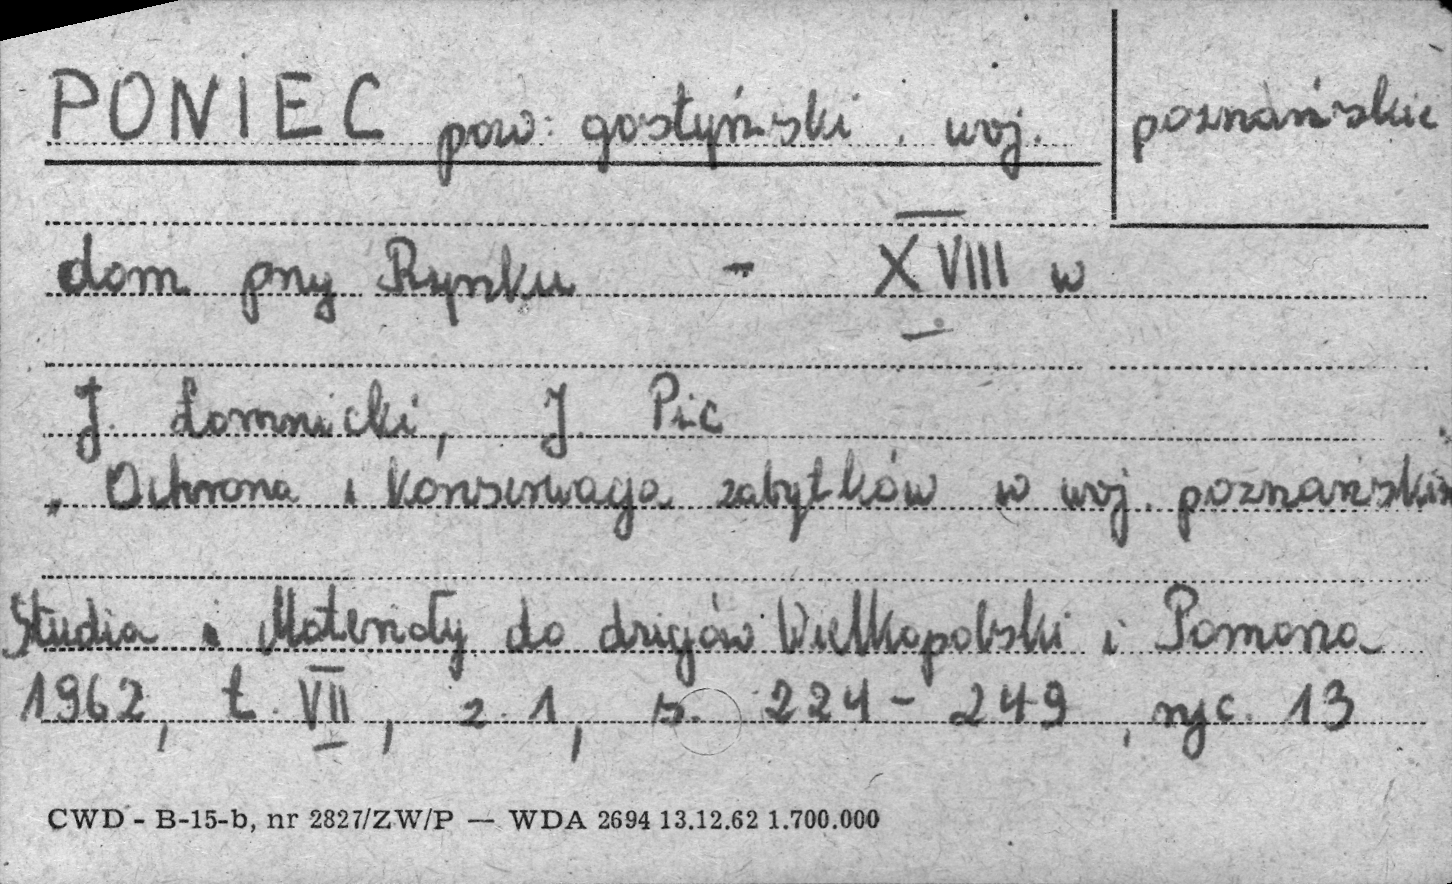 PONIEC pow: gostyński. woj. poznańskie
dom przy Rynku - XVIII w
J. Łomnicki, J. Pic
„Ochrona i konserwacja zabytków w woj. poznańskim
Studia i Materiały do dziejów Wielkopolski i Pomorza
1962, t. VII, z. 1, s. 224-249, ryc. 13
CWD - B-15-b, nr 2827/ZW/P — WDA 2694 13.12.62 1.700.000